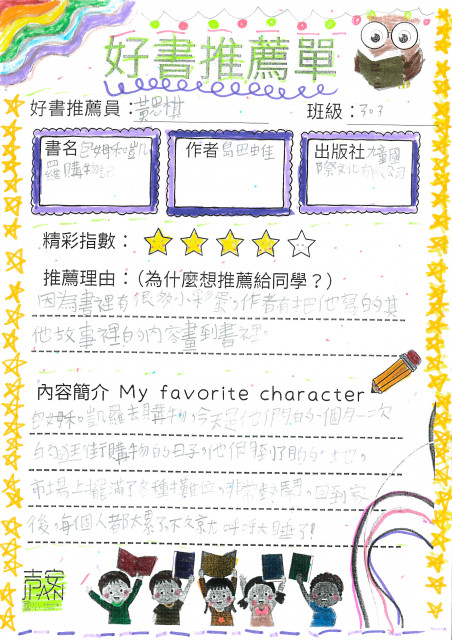 好書推薦單
好書推薦員：黃思棋
班級：303
書名 包姆和凱羅購物記
作者 島田由佳
出版社 九童國際文化有限公司
精彩指數：
推薦理由：（為什麼想推薦給同學？）
因為書裡有很多小彩蛋，作者有把他寫的其
他故事裡的內容畫到書裡。
內容簡介 My favorite character
包姆。凱羅去購物，今天是他們的一個月一次
的 購物的日子，他們到了目的土也。
市場上擺滿了各種攤位，非常熱鬧，回到家
後，每個人都太累了不久就呼呼大睡了！
吉安
JI-AN